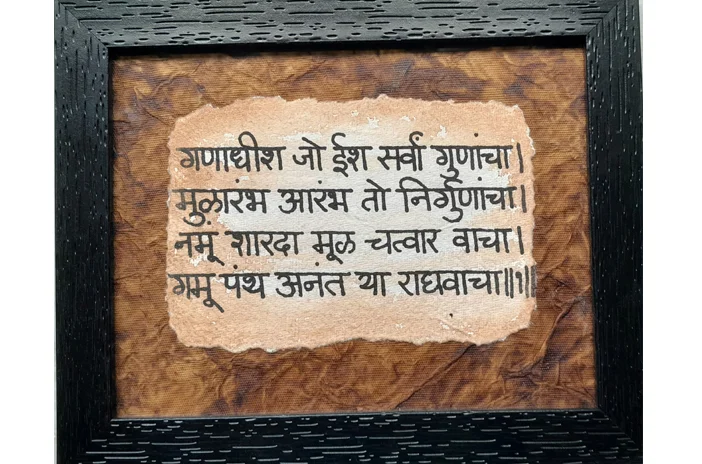 गणाधीश जो ईश सर्वां गुणांचा।
मुळारंभ आरंभ तो निर्गुणांचा।
नमूं शारदा मूळ चत्वार वाचा।
गमू पंथ अनंत या राघवाचा॥१॥